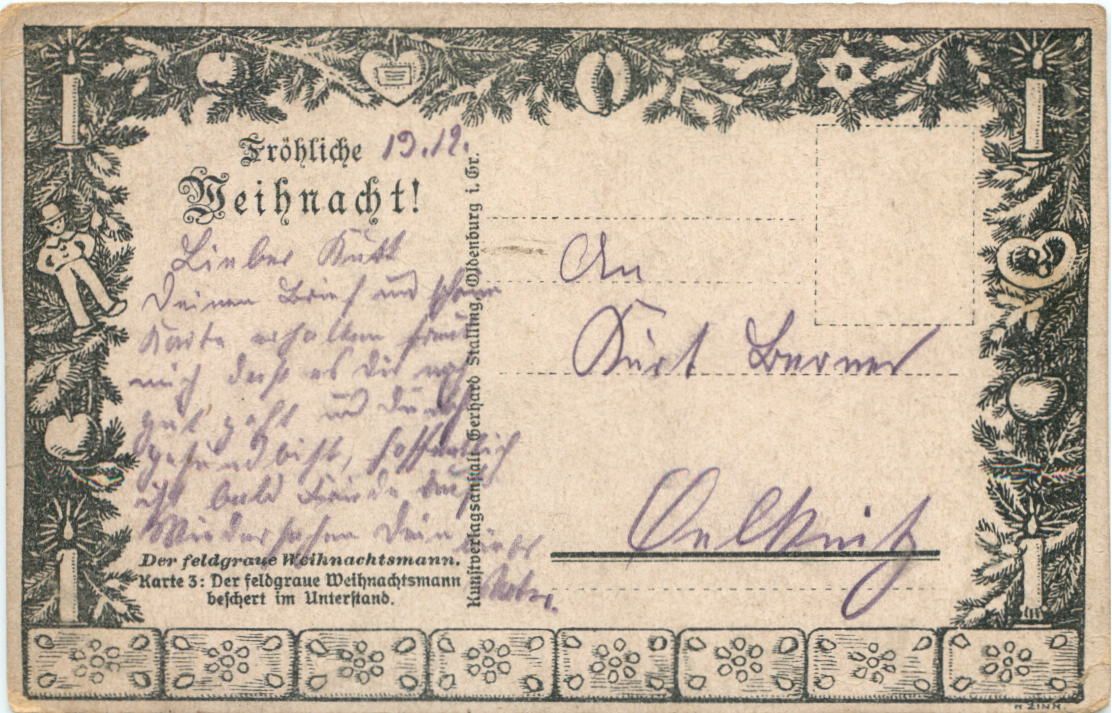 Fröhliche 19.12.
Weihnacht!
Lieber Kurt
Deinen Brief und schöne
Karte erhalten freut
mich daß es Dir noch
gut geht und Du noch
gesund bist, hoffentlich
ist bald Friede. Auf
Wiedersehen Dein
Der feldgraue Weihnachtsmann.
Karte 3: Der feldgraue Weihnachtsmann
beschert im Unterstand.
Kunstverlagsanstalt Gerhard Stalling, Oldenburg i. Gr.
An
Kurt Berner
Oelknitz
A ZINN.